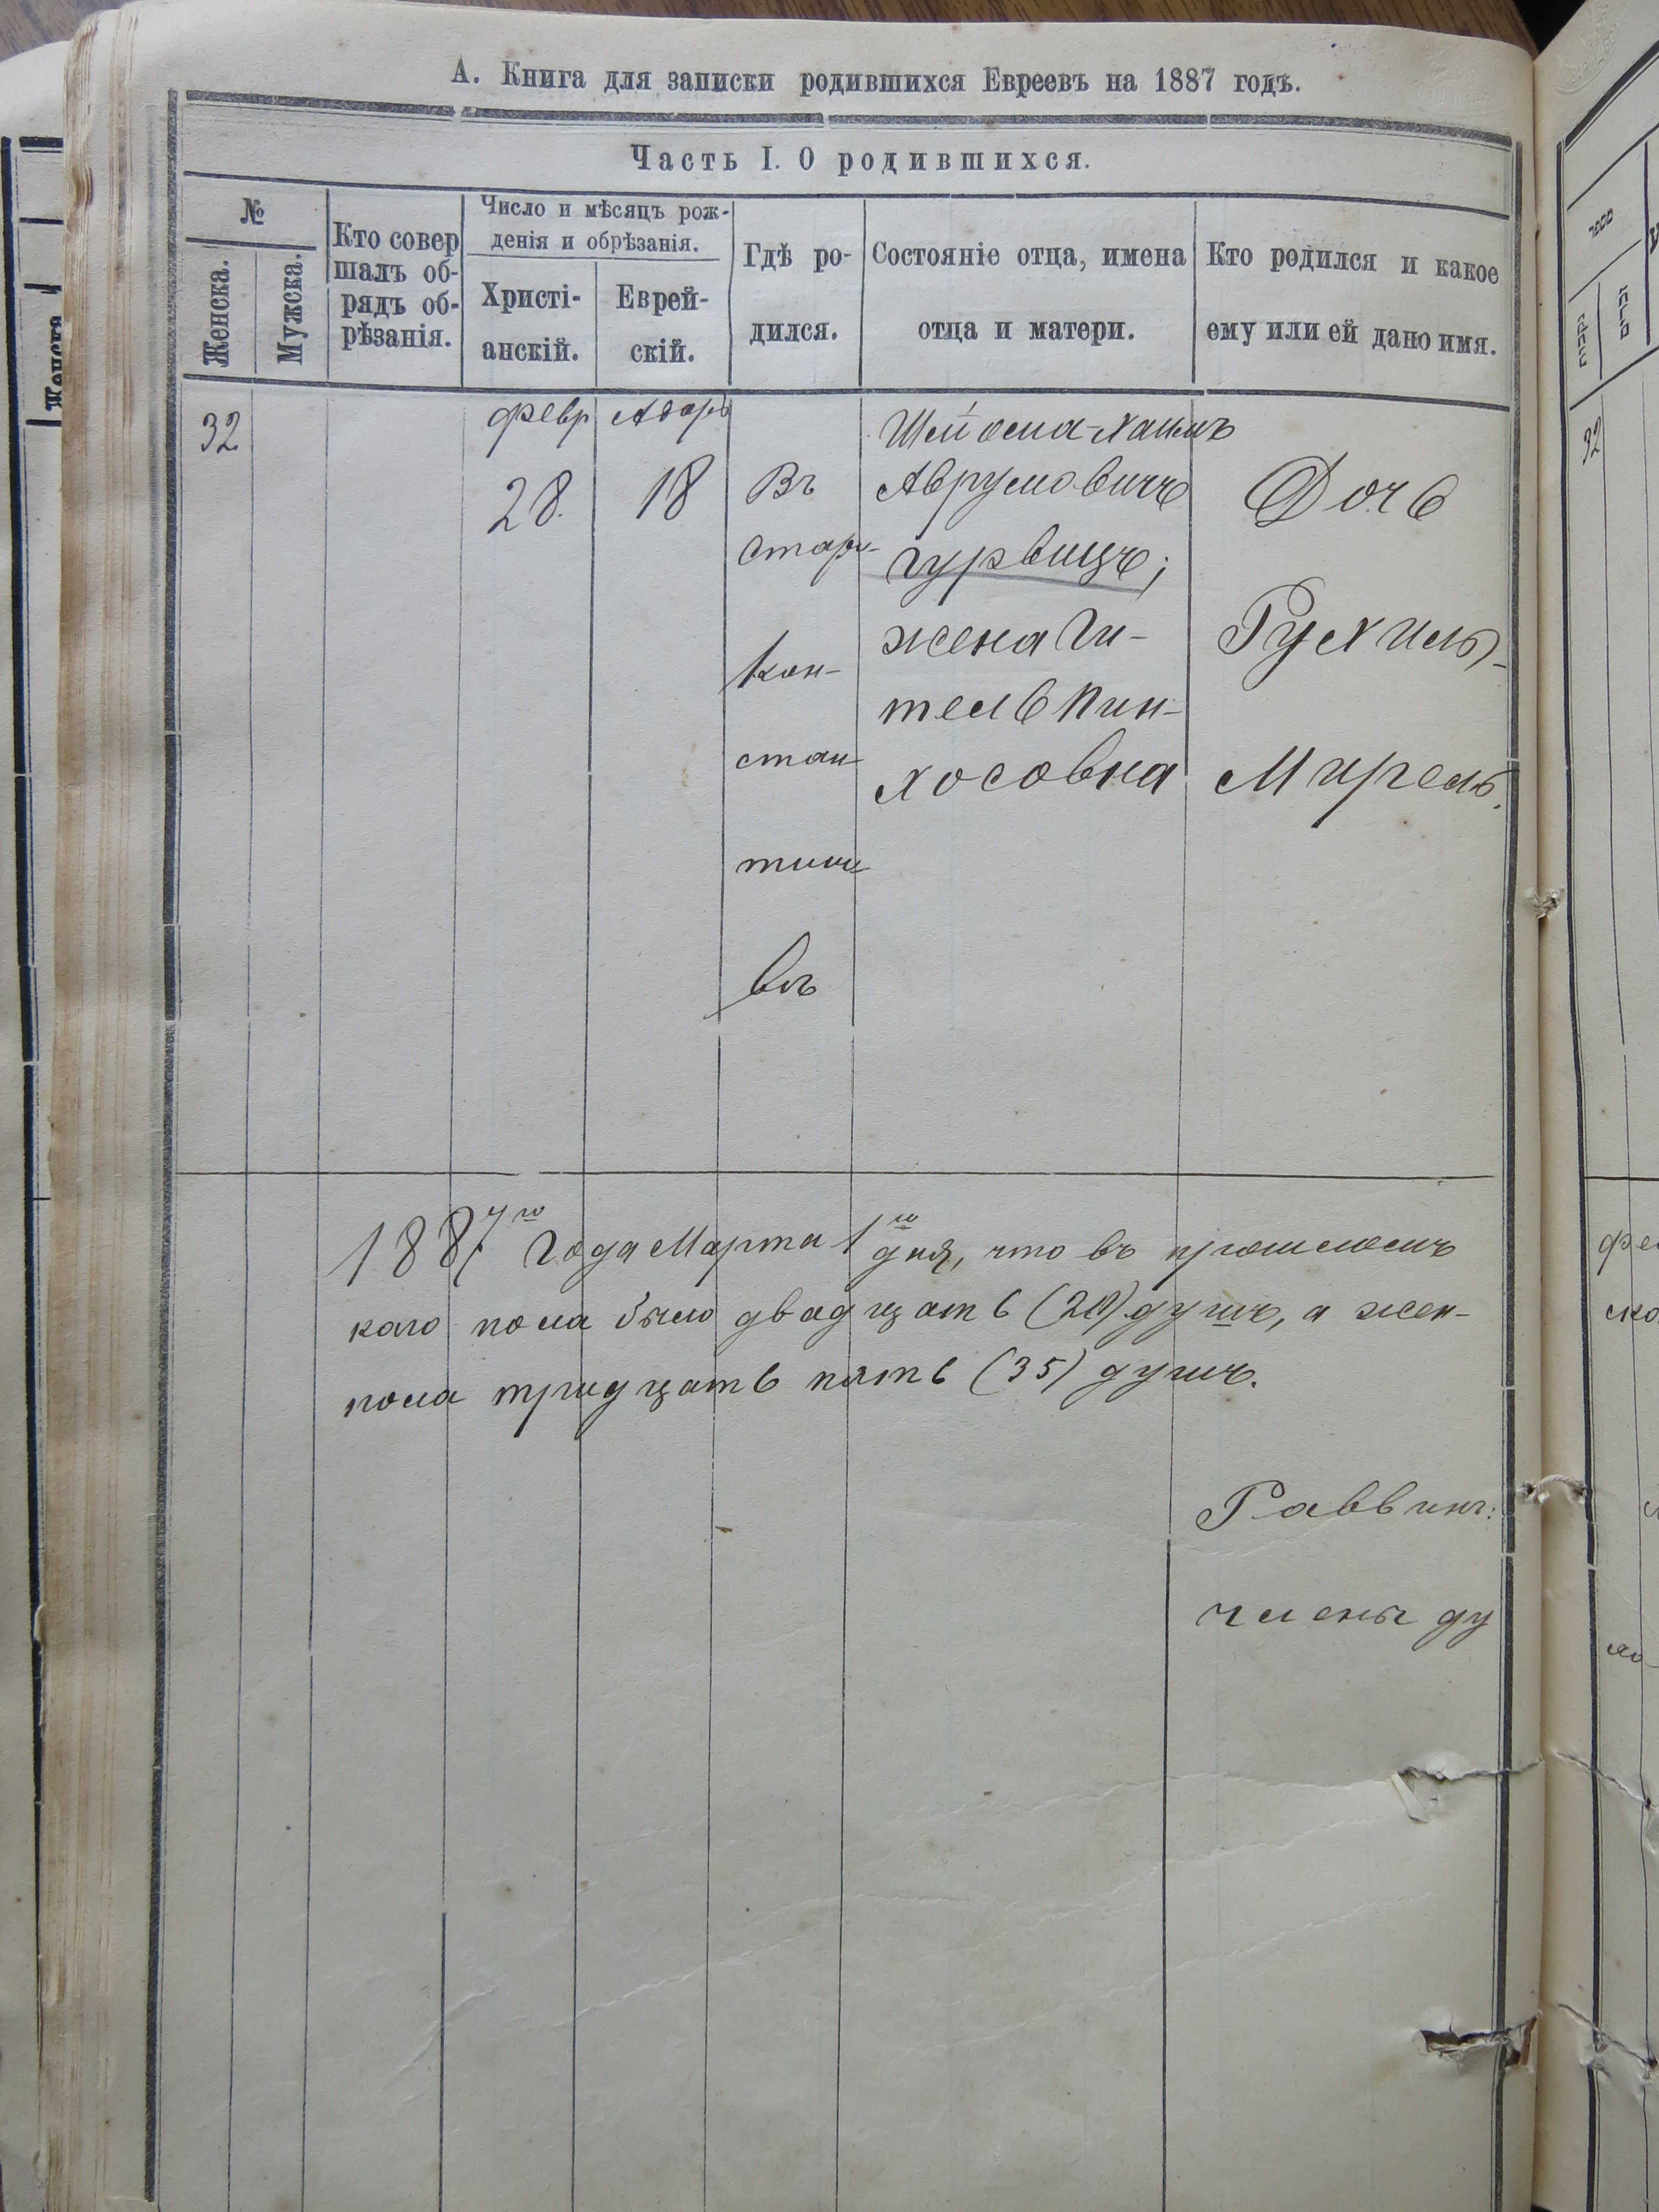 А. Книга для записки родившихся Евреевъ на 1887 годъ.
Часть I. О родившихся.
№
Женска.
Мужска.
Кто совер
шалъ об-
рядъ об-
рѣзанія.
Число и мѣсяцъ рож-
денія и обрѣзанія.
Христі-
анскій.
Еврей-
скій.
Гдѣ ро-
дился.
Состояніе отца, имена
отца и матери.
Кто родился и какое
ему или ей дано имя.
32
февр
28.
Адаръ
18
Въ
Старо-
Кон-
стан
тино
въ
Хаимъ
Аврумовичъ
Гурвицъ;
жена Ги-
тель Пин-
хосовна
Дочь
Рухиль-
Мирель.
1887го года Марта 1го дня, что въ прошломъ
каго пола было двадцать (20) душъ, а жен-
пола тридцать пять (35) душъ.
Раввинъ:
члены ду
32